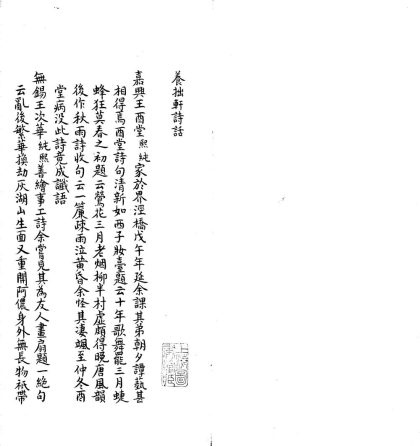 養拙軒詩話
嘉興王酉堂熙純家於界涇橋戊午年延余課其弟朝夕譚藝甚
相得焉酉堂詩句清新如西子妝臺題云十年歌舞罷三月蜨
蜂狂莫春之初題云鶯花三月老烟柳半村虛頗得晚唐風韻
後作秋雨詩收句云一簾疎雨泣黃昏余怪其淒颯至仲冬酉
堂病没此詩竟成讖語
無錫王次華純熙善繪事工詩余嘗見其為友人畫扇題一絕句
云亂後繁華換劫灰湖山生面又重開阿儂身外無長物祇帶